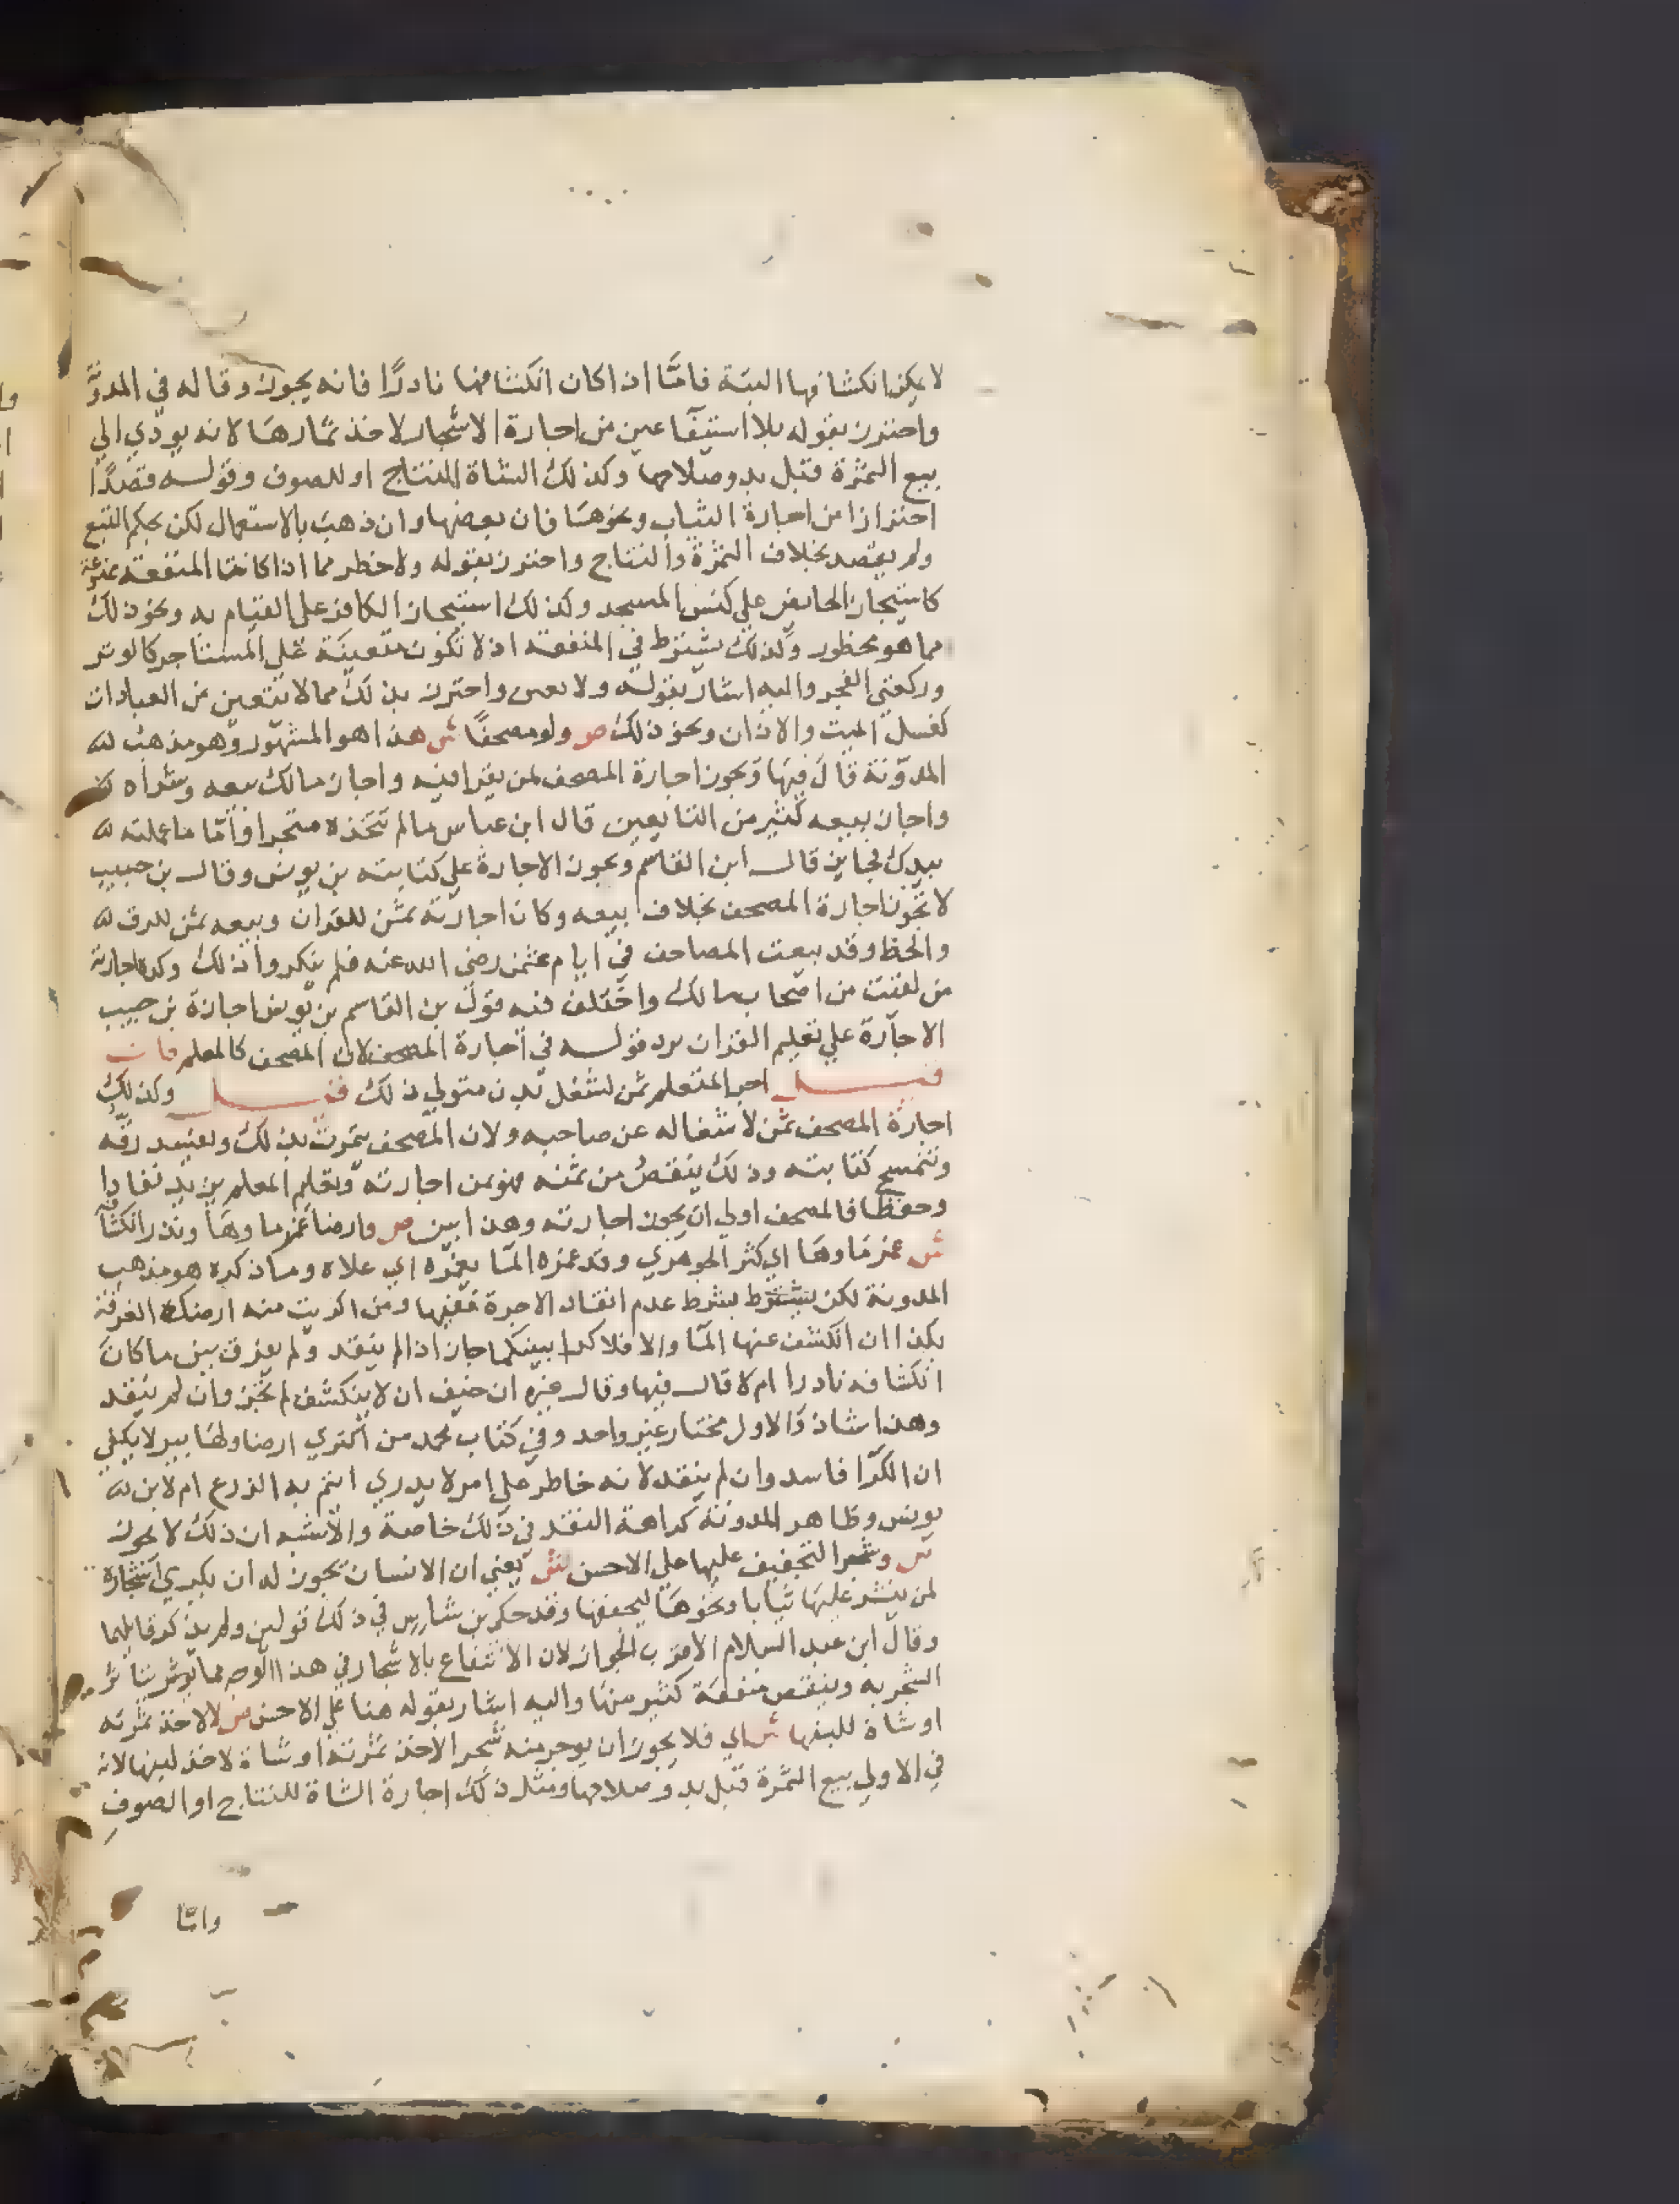 لا يمكن انكشافها البتة فامّا اذا كان انكشافها نادرًا فانه يجوز وقاله في المدوَّ
واحترز بقوله بلا استيفآ عين من اجارة الاشجار لاخذ ثمارها لانه يودي الي
بيع الثمرة قبل بدو صلاحها وكذلك الشاة للنتاج او للصوف وقوله قصدًا
احترازا من اجارة الثياب ونحوها فان بعضها وان ذهب بالاستعمال لكن بحكم التبع
ولم يقصد بخلاف الثمرة والنتاج واحترز بقوله ولا حظر مما اذا كانت المنفعة ممنوعة
كاستيجار الحايض علي كنس المسجد وكذلك استيجار الكافر علي القيام به ونحو ذلك
مما هو محظور وكذلك يشترط في المنفعة ان لا تكون متعينة علي المستاجر كالوتر
وركعتي الفجر واليه اشار بقوله ولا تعين واحترز بذلك مما لا يتعين من العبادات
كغسل الميت والاذان ونحو ذلك ص ولو مصحفًا ش هذا هو المشهور وهو مذهب
المدونة قال فيها ويجوز اجارة المصحف لمن يقرا فيه واجاز مالك بيعه وشراه
واجاز بيعه كثير من التابعين قال ابن عباس ما لم تتخذه متجرا وامّا ما عملته
بيدك فجايز قال ابن القاسم ويجوز الاجارة علي كتابته بن يونس وقال بن حبيب
لا تجوز اجارة المصحف بخلاف بيعه وكان اجارته ثمن للقران وبيعه ثمن للرق
والخط وقد بيعت المصاحف في ايام عثمن رضي الله عنه فلم ينكروا ذلك وكره اجارته
من لقيت من اصحاب مالك واختلف فيه قول بن القاسم بن يونس اجازة بن حبيب
الاجارة علي تعليم القران يرد قوله في اجارة المصحف لان المصحف كالمعلم فان
قيل اجر المتعلم ثمن لشغل بدن متولي ذلك قيل وكذلك
اجارة المصحف ثمن لاشتغاله عن صاحبه ولان المصحف يتمرث بذلك ويتغير رقه
وتنمسح كتابته وذلك ينقص من ثمنه فهو ثمن اجارته وتعليم المعلم يزيد نفاذا
وحفظا فالمصحف اولي ان يجوز اجارته وهذا ابين ص وارضا غمر ماوها وندر انكشافه
ش غمر ماوها اي كثر الجوهري وقد غمره المآ يغمره اي علاه وما ذكره هو مذهب
المدونة لكن يشترط بشرط عدم انتقاد الاجرة ففيها ومن اكريت منه ارضك الغرقة
بكذا ان انكشف عنها المآ والا فلا كرا بينكما جاز اذا لم ينقد ولم يفرق بين ما كان
انكشافه نادرا ام لا قال فيها وقال غيره ان خيف ان لا ينكشف لم يجز وان لم ينقد
وهذا شاذ والاول مختار غير واحد وفي كتاب محمد من اكتري ارضا ولها بير لا يكفي
ان الكرا فاسد وان لم ينقد لانه خاطر علي امر لا يدري ايتم به الزرع ام لا بن
يونس وظاهر المدونة كراهة النقد في ذلك خاصة والاشبه ان ذلك لا يجوز
ص وشجرا لتجفيف عليها علي الاحسن ش يعني ان الانسان يجوز له ان يكري اشجاره
لمن ينشر عليها ثيابا ونحوها ليجففها وقد حكي بن شاس في ذلك قولين ولم يذكر قايلهما
وقال ابن عبد السلام الاقرب الجواز لان الانتفاع بالاشجار في هذا الوجه مما يوثر يتاثر
الشجر به وينقص منفعة كثير منها واليه اشار بقوله هنا علي الاحسن ص لا لاخذ ثمرته
او شاة للبنها ش اي فلا يجوز ان يوجر منه شجرا لاخذ ثمرته او شاة لاخذ لبنها لانه
في الاولي بيع الثمرة قبل بدو صلاحها ومثل ذلك اجارة الشاة للنتاج او الصوف
وامّا